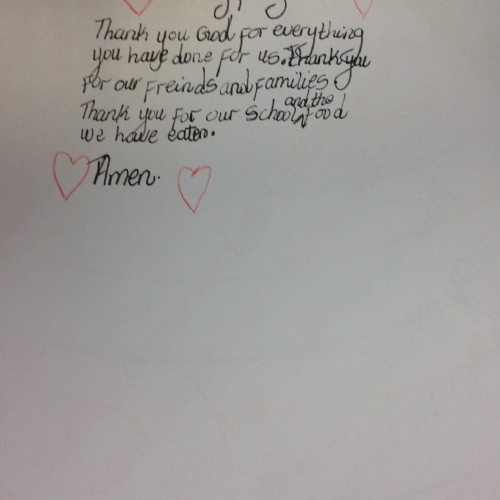 Thank you God for everything
you have done for us. Thank you
for our freinds and families.
Thank you for our School and the food
we have eaten.
Amen.